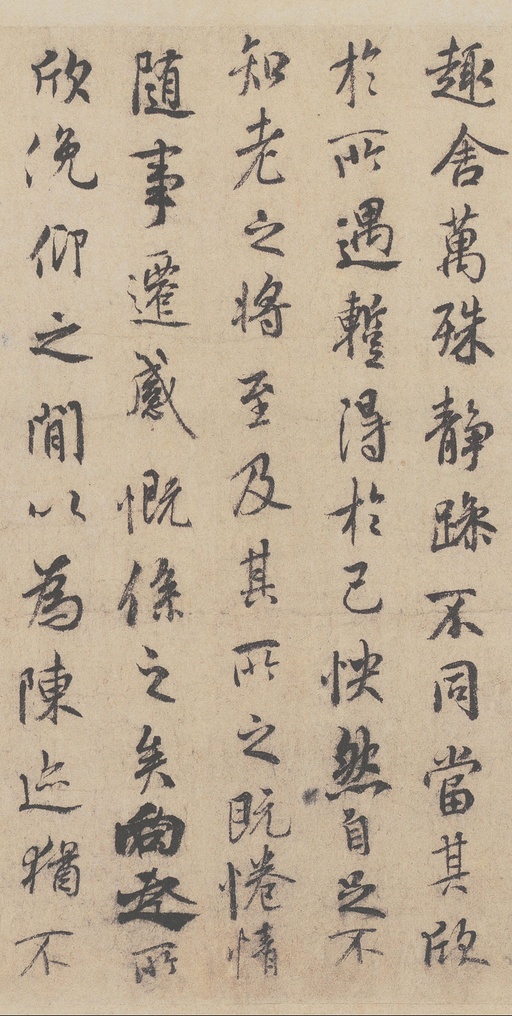 趣舍萬殊静躁不同當其欣
於所遇蹔得於己怏然自足不
知老之將至及其所之既惓情
随事遷感慨係之矣向之所
欣俛仰之間以為陳迹猶不